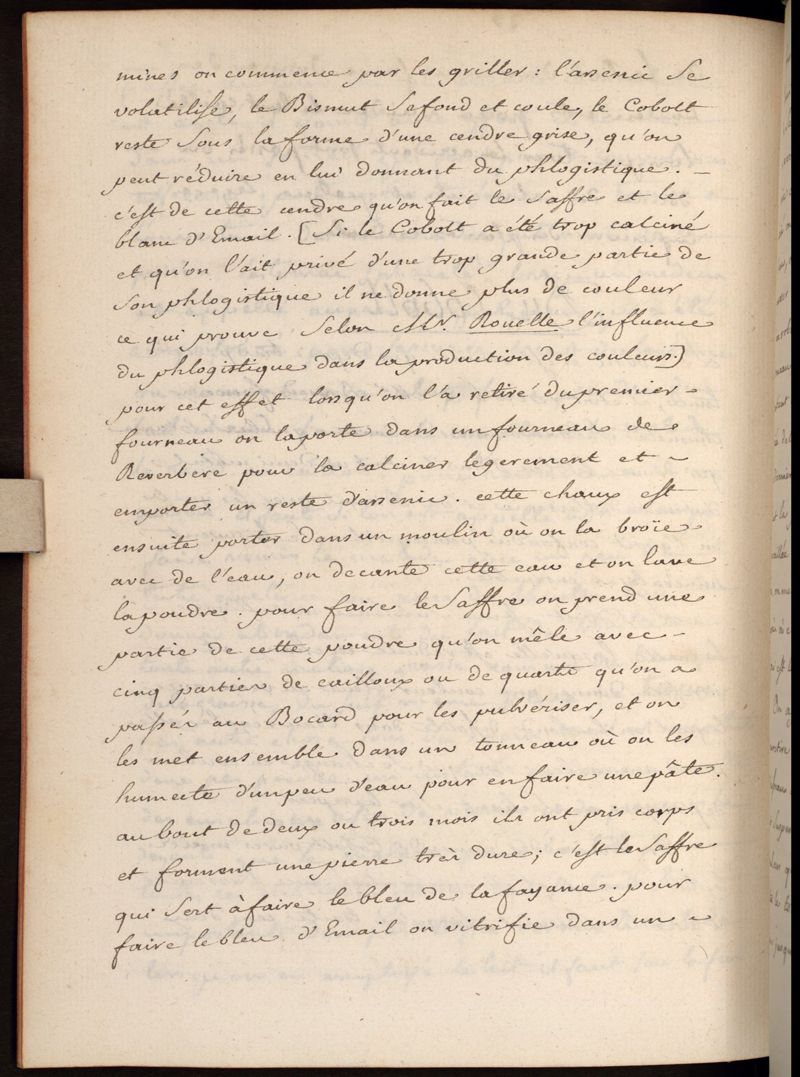 mines on commence par les griller : l'arsenic se
volatilise, le Bismut se fond et coule, le Cobolt
reste sous la forme d'une cendre grise, qu'on
peut réduire en lui donnant du phlogistique. _
c'est de cette cendre qu'on fait le Saffre et le
blanc d'Email. [Si le Cobolt a été trop calciné
et qu'on l'ait privé d'une trop grande partie de
son phlogistique il ne donne plus de couleur
ce qui prouve selon Mr Rouelle l'influence
du phlogistique dans la production des couleurs.]
pour cet effet lorsqu'on l'a retiré du premier -
fourneau on la porte dans un fourneau de
Reverbère pour la calciner legerement et ~
emporter un reste d'arsenic. cette chaux est
ensuite porter dans un moulin où on la broïe
avec de l'eau, on decante cette eau et on lave
la poudre. pour faire le Saffre on prend une
partie de cette poudre qu'on mêle avec -
cinq parties de cailloux ou de quartz qu'on a
passés au Bocard pour les pulvériser, et on
les met ensemble dans un tonneau où on les
humecte d'un peu d'eau pour en faire une pâte.
au bout de deux ou trois mois ils ont pris corps
et forment une pierre très dure; c'est le Saffre
qui sert à faire le bleu de la fayance. pour
faire le bleu d'Email on vitrifie dans un ~